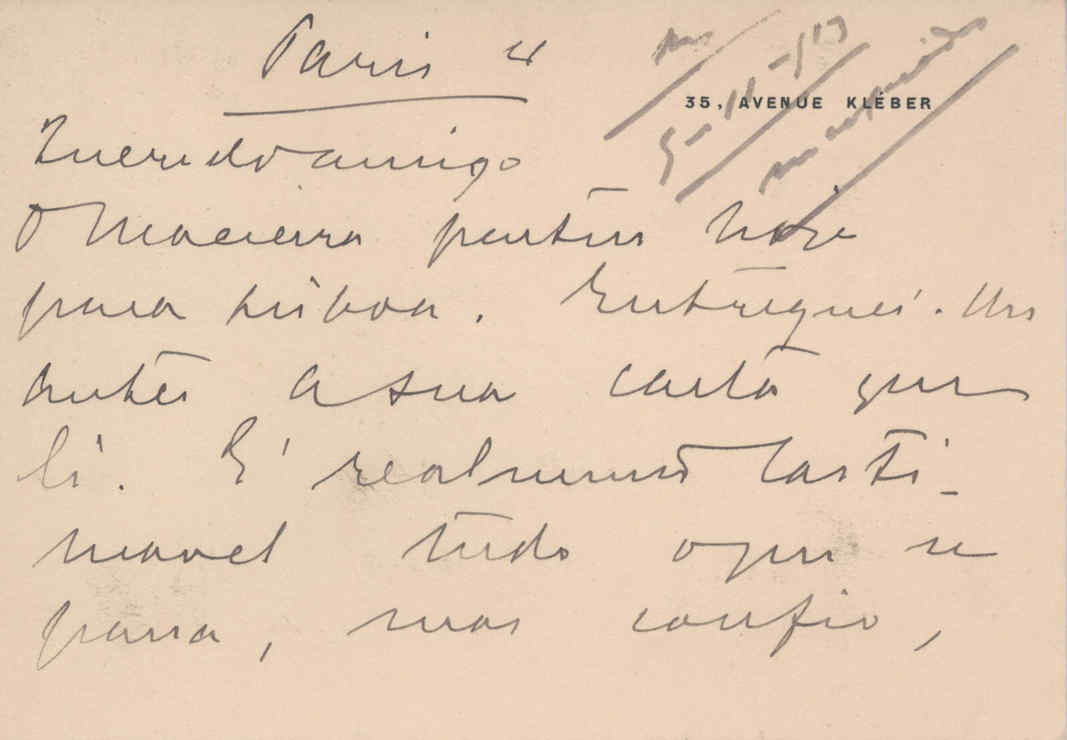 Paris 4
35, AVENUE KLÉBER
Querido amigo
O Macieira partiu hoje
para Lisboa. Entreguei-lhe
antes a sua carta que
li. É realmente lasti-
mavel tudo o que se
passa, mas confio,